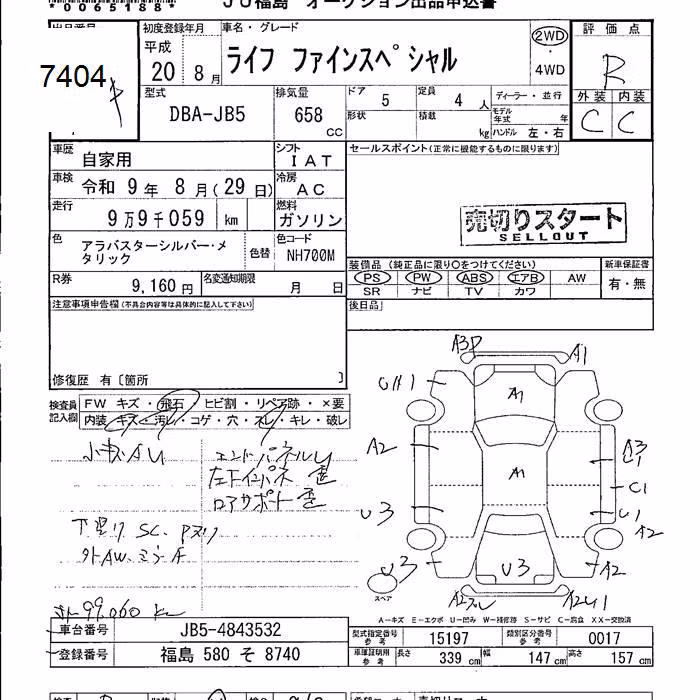 *0065188*
JU福島 オークション出品申込書
出品番号 初度登録年月 車名・グレード 評価点
7404 平成 20 8月 ライフ ファインスペシャル 2WD ・ 4WD R
外装 内装
C C
型式 DBA-JB5 排気量 658 CC ドア 5 定員 4人 ディーラー・並行
形状 積載 kg モデル年式 年 ハンドル 左・右
車歴 自家用 シフト IAT セールスポイント(正常に機能するものに限ります)
車検 令和 9年 8月(29日) 冷房 AC
走行 9万9千059 km 燃料 ガソリン
売切りスタート
SELLOUT
色 アラバスターシルバー・メタリック 色替 色コード NH700M
装備品 (純正品に限り○をつけてください) 新車保証書
PS PW ABS エアB AW 有・無
SR ナビ TV カワ
R券 9,160円 名変通知期限 月 日 後日品
注意事項申告欄(不具合内容等は具体的に記入して下さい)
修復歴 有〔箇所 〕
検査員記入欄
FW キズ・飛石 ヒビ割・リペア跡・×要
内装 キズ・汚レ・コゲ・穴・スレ・キレ・破レ
小キズAU エンドパネルU
左下インパネ 歪
ロアサポート 歪
下廻り SC、Pヌリ
外AW、ミラーA
99,060 km
A3P A1
UH1 A1
A2 A1 A3
U1
C1
U3 U1
A2
U3 U3 A2
スペア
A2 A2U1
A-キズ E-エクボ U-凹み W-補修跡 S-サビ C-腐食 XX-交換済
車台番号 JB5-4843532
登録番号 福島 580 そ 8740
型式指定番号 参考 15197 類別区分番号 参考 0017
車庫証明用 参考 長さ 339 cm 幅 147 cm 高さ 157 cm